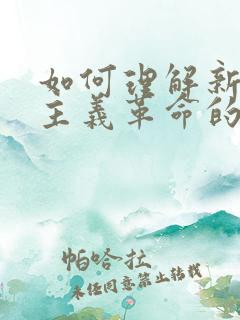 如何理解新
主义革命的
帕哈拉
未经同意禁止转载